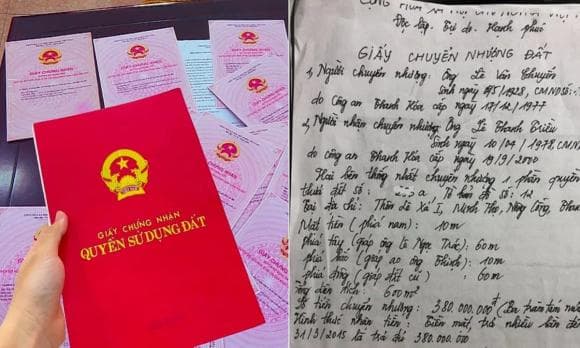 GIẤY CHỨNG NHẬN
QUYỀN SỬ DỤNG ĐẤT
GIẤY CHỨNG NHẬN
GIẤY CHỨNG NHẬN
Độc lập. Tự do. Hạnh phúc
GIẤY CHUYỂN NHƯỢNG ĐẤT
1, Người chuyển nhượng: Ông Lê Văn Thuyên
Sinh ngày /5/1928, CMND số:
do Công an Thanh Hóa cấp ngày 17/12/1977
2, Người nhận chuyển nhượng Ông Lê Thanh Triều
Sinh ngày 10/04/1978, CMN
do công an Thanh Hóa cấp ngày 19/9/2000
Hai bên thống nhất chuyển nhượng 1 phần quyền
thửa đất số: a, Tờ bản đồ số: 12
Tại địa chỉ: Thôn Lê Xá 1, Minh Thọ, Nông Cống, Thanh
Mặt tiền (phía nam): 10m
phía tây (giáp ông Lê Ngọc Trúc): 60m
phía bắc (giáp ao ông Thịnh): 10m
phía đông (giáp đất cũ): 60m
Tổng diện tích: 600m²
Số tiền chuyển nhượng: 380.000.000đ (Ba trăm tám mươi
Hình thức nhận tiền: Tiền mặt, trả nhiều lần đến
31/3/2015 là trả đủ 380.000.000